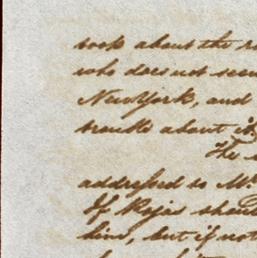 took about the
who does not
New York, and
trouble about it
The
addressed to Mr.
If Rojas
him, but if not